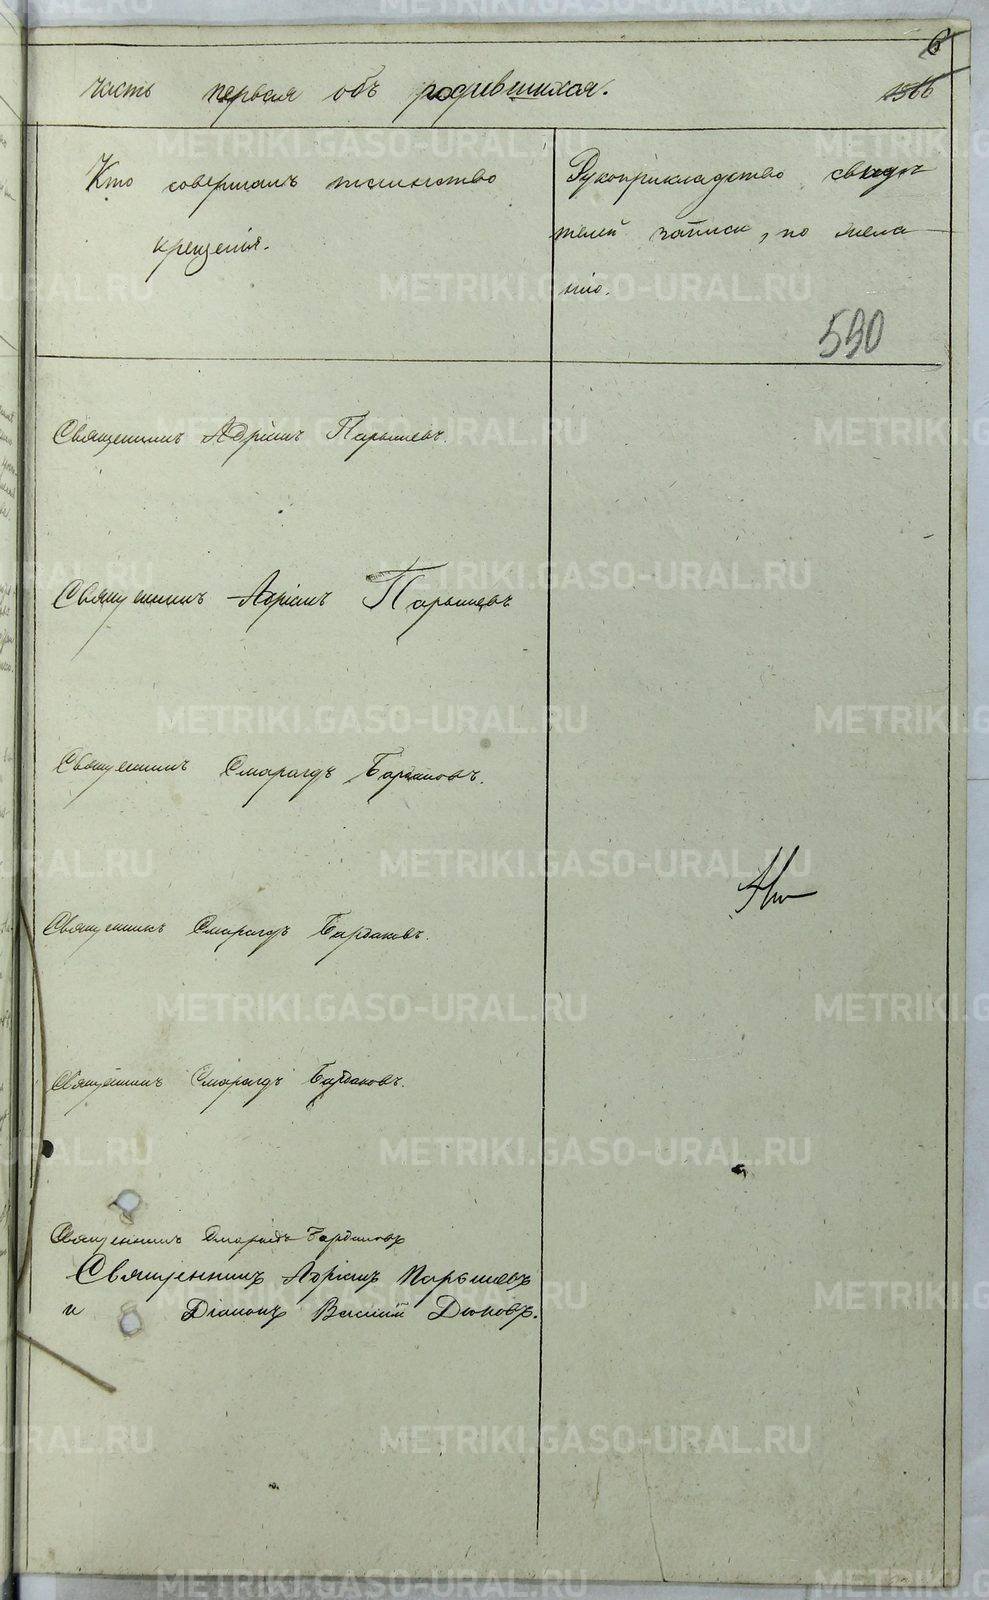 6
часть первая объ родившихся.
1566
Кто совершалъ таинство
крещенія.
Рукоприкладство свидѣ
телей записи, по жела
нію.
590
Священникъ Адріанъ Парышевъ.
Священникъ Адріанъ Парышевъ
Священникъ Смарагдъ Бардаковъ.
Священникъ Смарагдъ Бардаковъ.
Священникъ Смарагдъ Бардаковъ.
Священникъ Смарагдъ Бардаковъ
Священникъ Адріанъ Парышевъ
и Діаконъ Василій Дюковъ.
METRIKI.GASO-URAL.RU